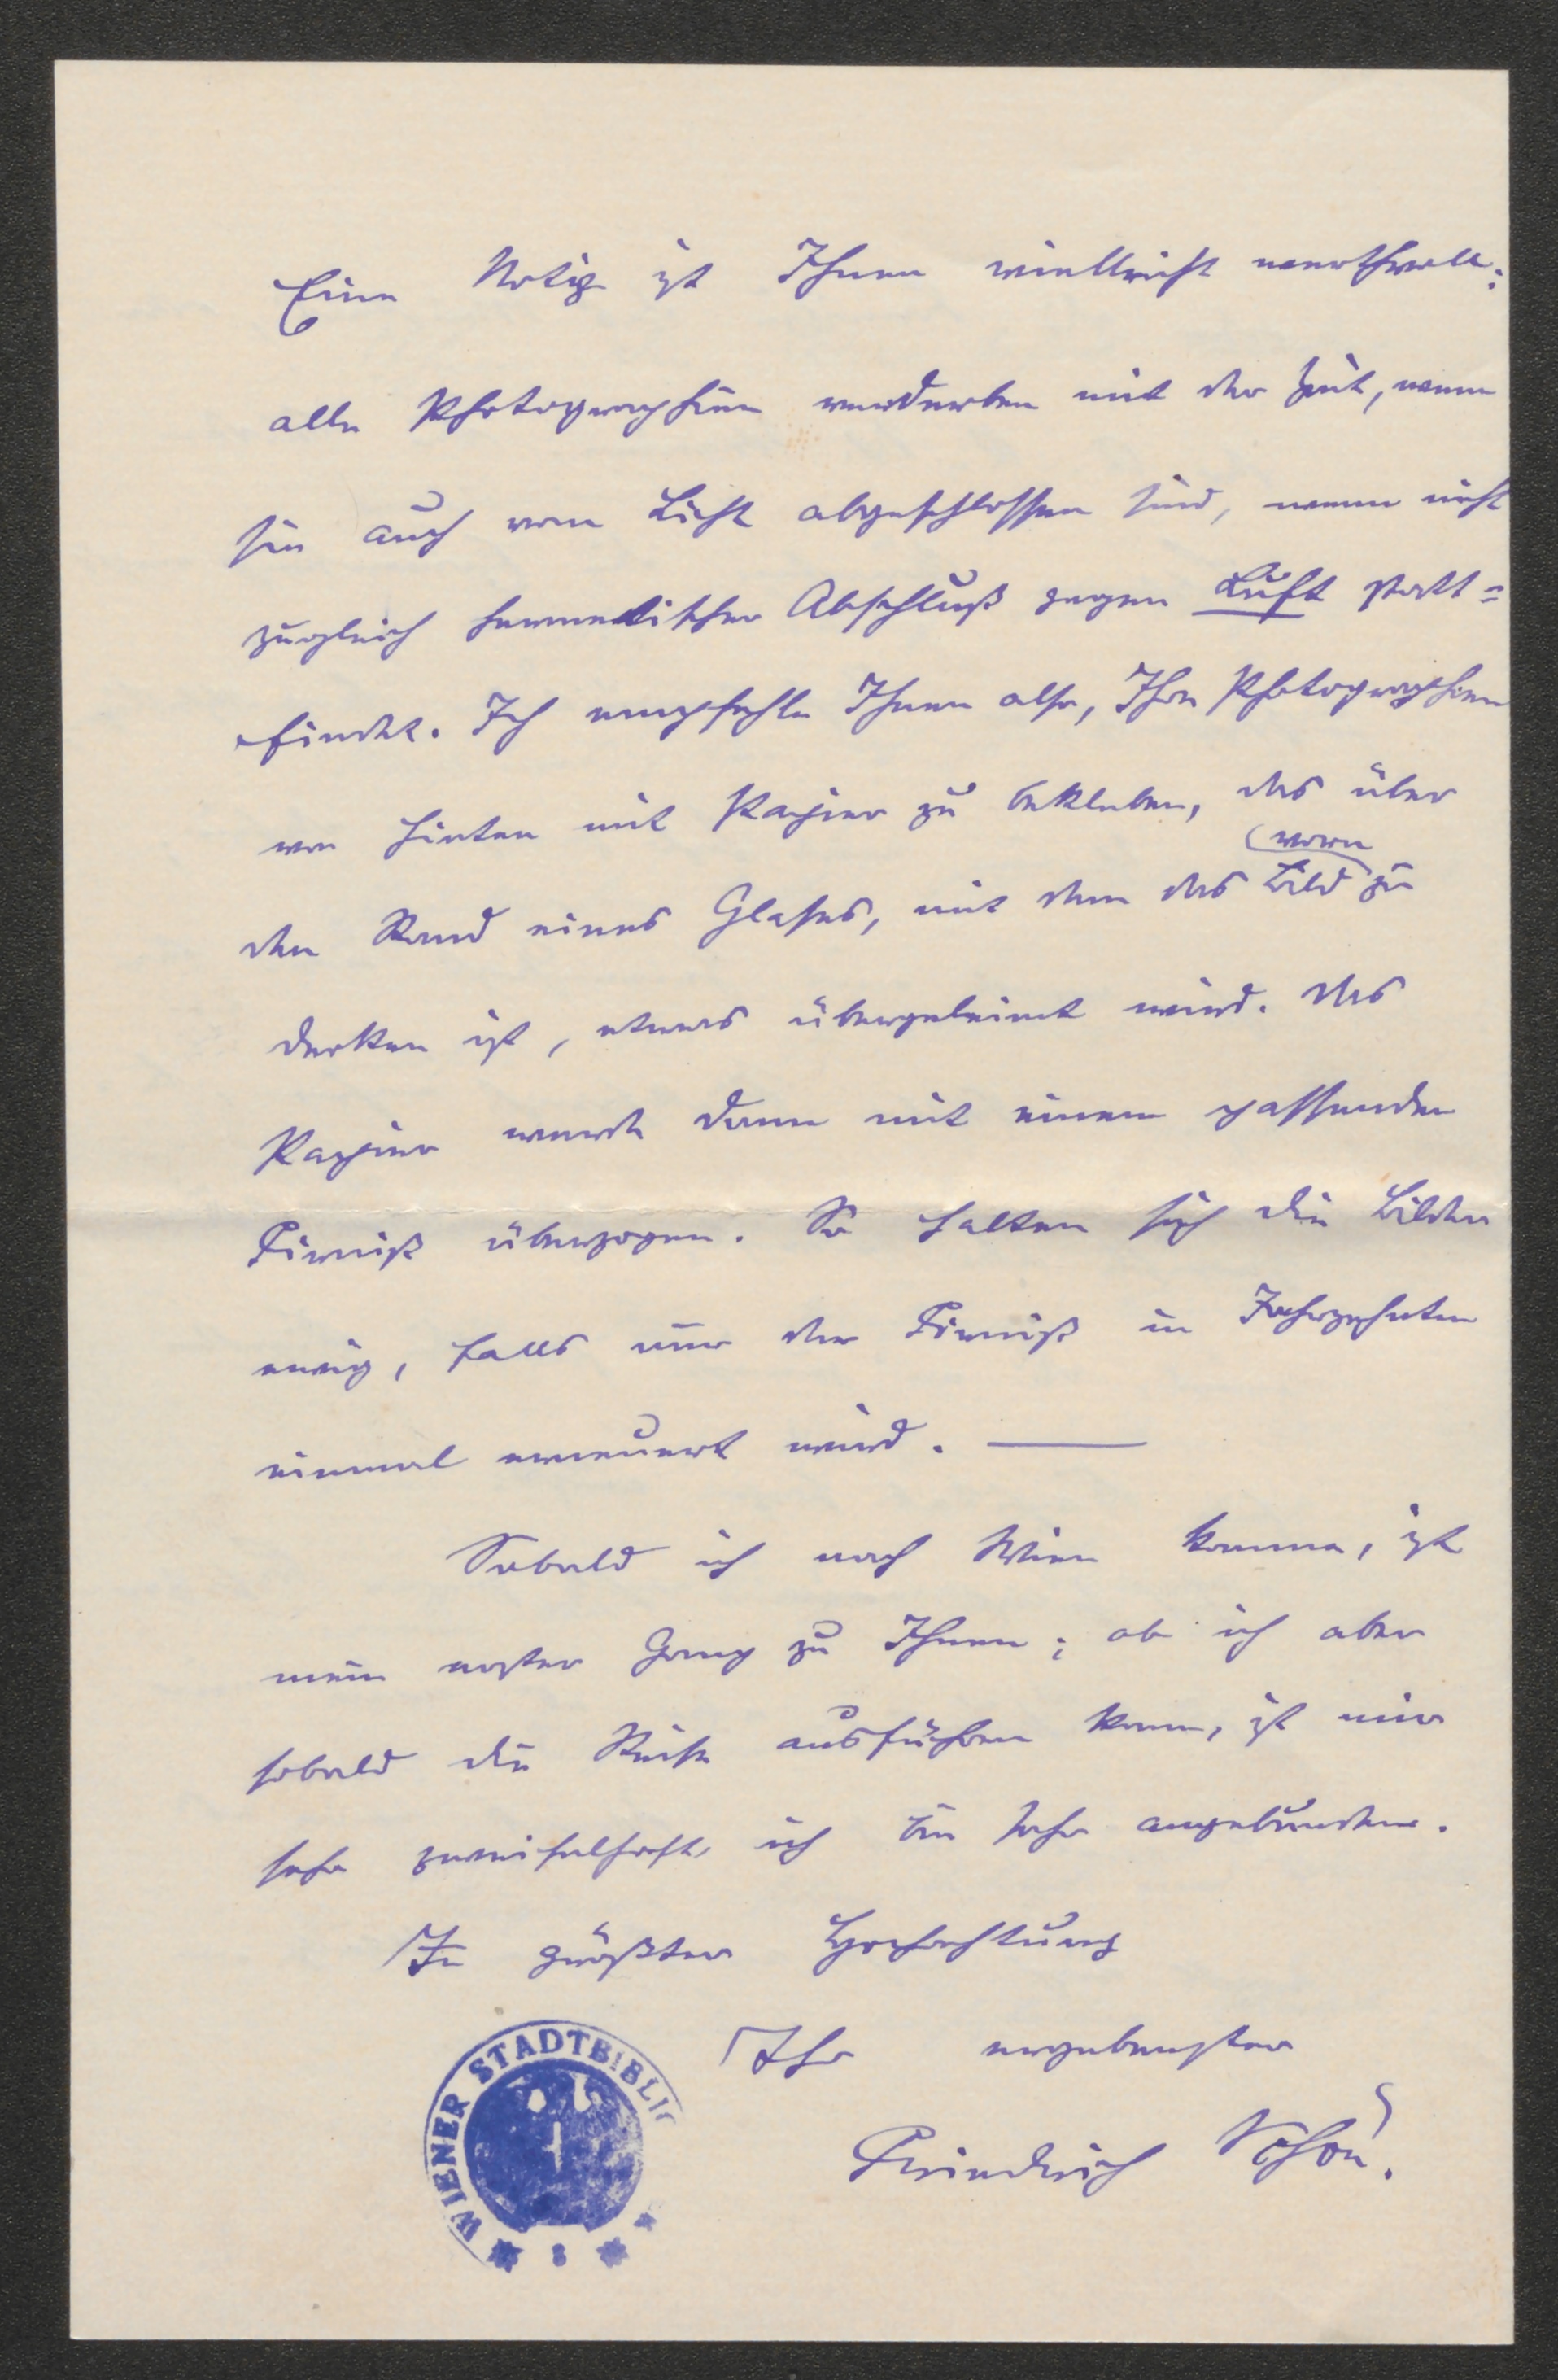 Eine Notiz ist Ihnen vielleicht werthvoll:
alle Photographien verderben mit der Zeit, wenn
sie auch vom Licht abgeschlossen sind, wenn nicht
zugleich hermetischer Abschluß gegen Luft statt=
findet. Ich empfehle Ihnen also, Ihre Photographien
von hinten mit Papier zu bekleben, das über
vorn
den Rand eines Glases, mit dem das Bild zu
decken ist, etwas übergeleimt wird. Das
Papier werde dann mit einem passenden
Firniß überzogen. So halten sich die Bilder
ewig, falls nur der Firniß in Jahrzehnten
einmal erneuert wird. —
Sobald ich nach Wien komme, ist
mein erster Gang zu Ihnen; ob ich aber
sobald die Reise ausführen kann, ist mir
sehr zweifelhaft, ich bin sehr angebunden.
In größter Hochachtung
Ihr ergebenster
Friedrich Schön.
WIENER STADTBIBLIO
8